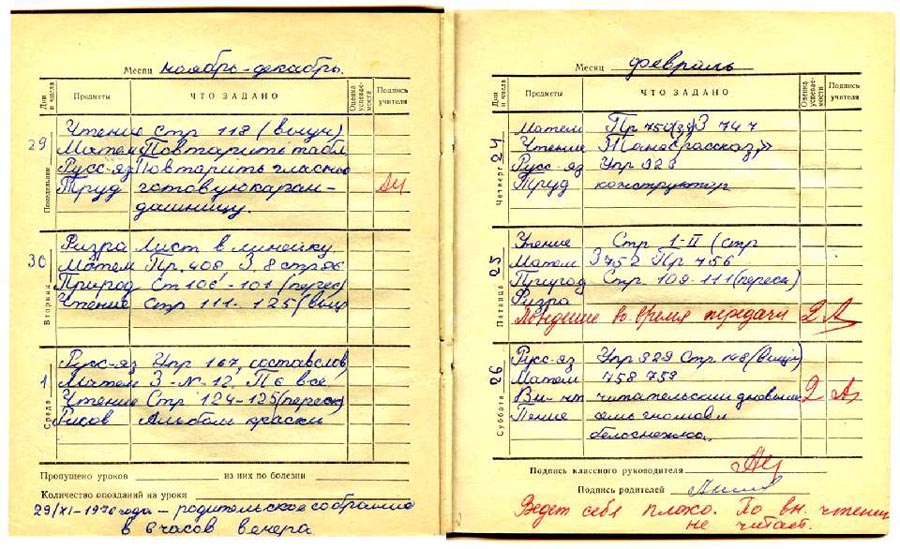 Месяц ноябрь-декабрь.
Дни и числа Предметы ЧТО ЗАДАНО Оценка успеваемости Подпись учителя
29 Понедельник
Чтение Стр 118 (выуч)
Матем Повтарить табл
Русс-яз Повтарить гласные
Труд готовую каран-
дашницу.
30 Вторник
Физра Лист в линейку
Матем Пр. 408, З, 8 стр 86
Природ Ст 100-101 (перес)
Чтение Стр 111-125 (выр
1 Среда
Русс-яз Упр 167, состав слов
Матем З-№ 12, П 6 все
Чтение Стр 124-125 (переск)
Рисов Альбом краски
Пропущено уроков из них по болезни
Количество опозданий на уроки
29/XI-1976 года - родительское собрание
в 6 часов вечера
Месяц февраль
Дни и числа Предметы ЧТО ЗАДАНО Оценка успеваемости Подпись учителя
24 Четверг
Матем Пр 750 З 747
Чтение рассказ,»
Русс-яз Упр 323
Труд конструктор
25 Пятница
Чтение Стр I-II (стр
Матем З 752 Пр 756
Природ Стр 109-111 (переск)
Физра
во время передачи 2
26 Суббота
Русс-яз Упр 329 Стр 148 (выуч)
Матем 758 759
Вн-чт читательский дневник 2
Пение семь гномов и
белоснежка.
Подпись классного руководителя
Подпись родителей
Ведет себя плохо. По вн. чтению
не читает.